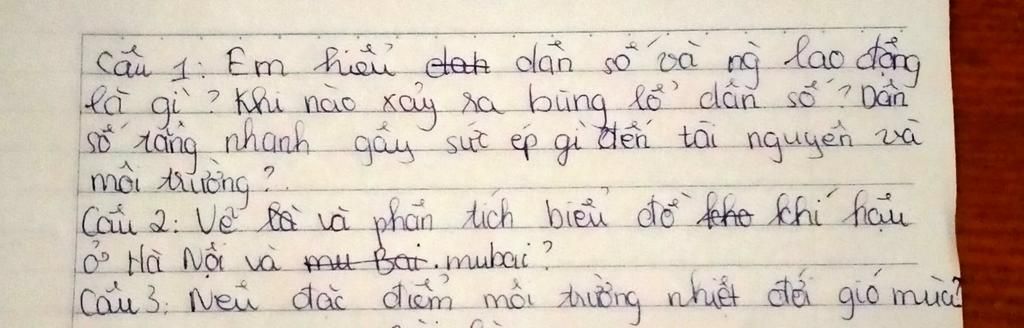 Câu 1: Em hiểu dân số và ng lao động
là gì? Khi nào xảy ra bùng lổ dân số? Dân
số tăng nhanh gây sức ép gì đến tài nguyên và
môi trường?
Câu 2: Vẽ và phân tích biểu đồ khí hậu
ở Hà Nội và mubai?
Câu 3: Nêu đặc điểm môi trường nhiệt đới gió mùa?